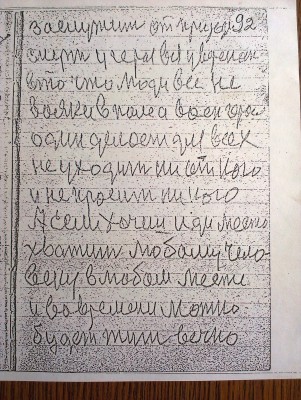 заслужит от природы 92
смерть у черты вся уведенан
в то что люди все не
вояки в поле а воен
один делает для всех
не уходит ни от кого
и не просит никого
А если хочиш иди место
хватит любому чело
веку в любом месте
и во времени можно
будет жить вечно